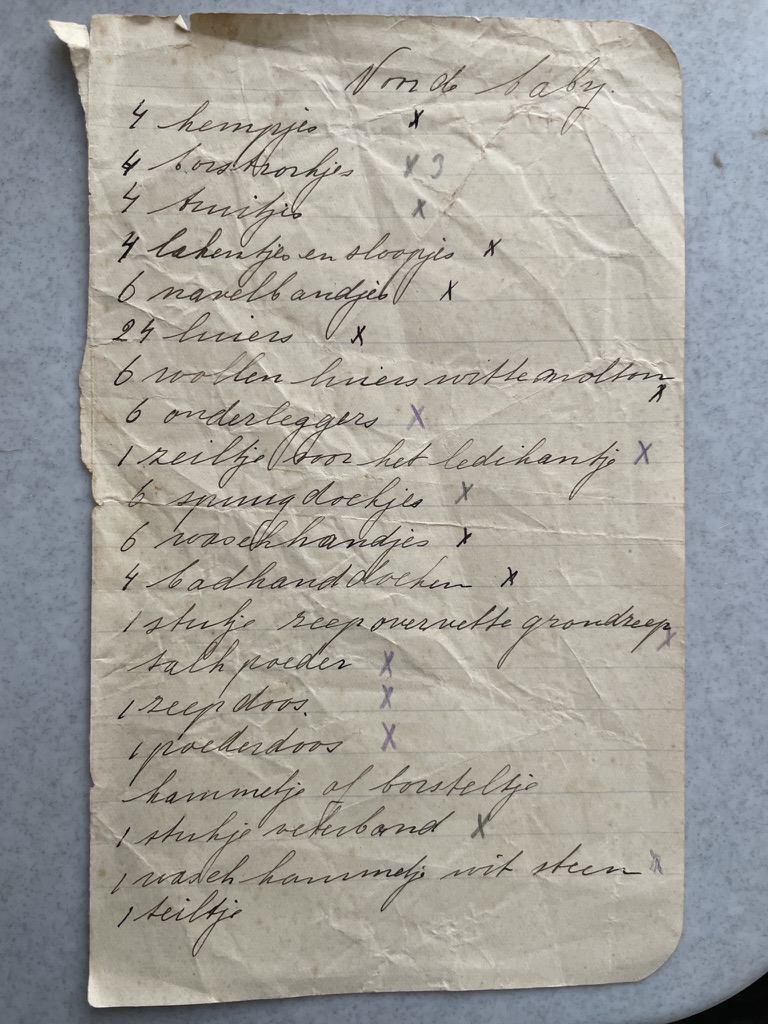 Voor de baby.
4 hempjes x
4 borstrokjes x 3
4 truitjes x
4 lakentjes en sloopjes x
6 navelbandjes x
24 luiers x
6 wollen luiers witte molton x
6 onderleggers x
1 zeiltje voor het ledikantje x
6 spuugdoekjes x
6 waschhandjes x
4 badhanddoeken x
1 stukje zeep overvette grondzeep x
talk poeder x
1 zeepdoos. x
1 poederdoos x
kammetje of borsteltje
1 stukje veterband x
1 wasch kommetje wit steen x
1 teiltje